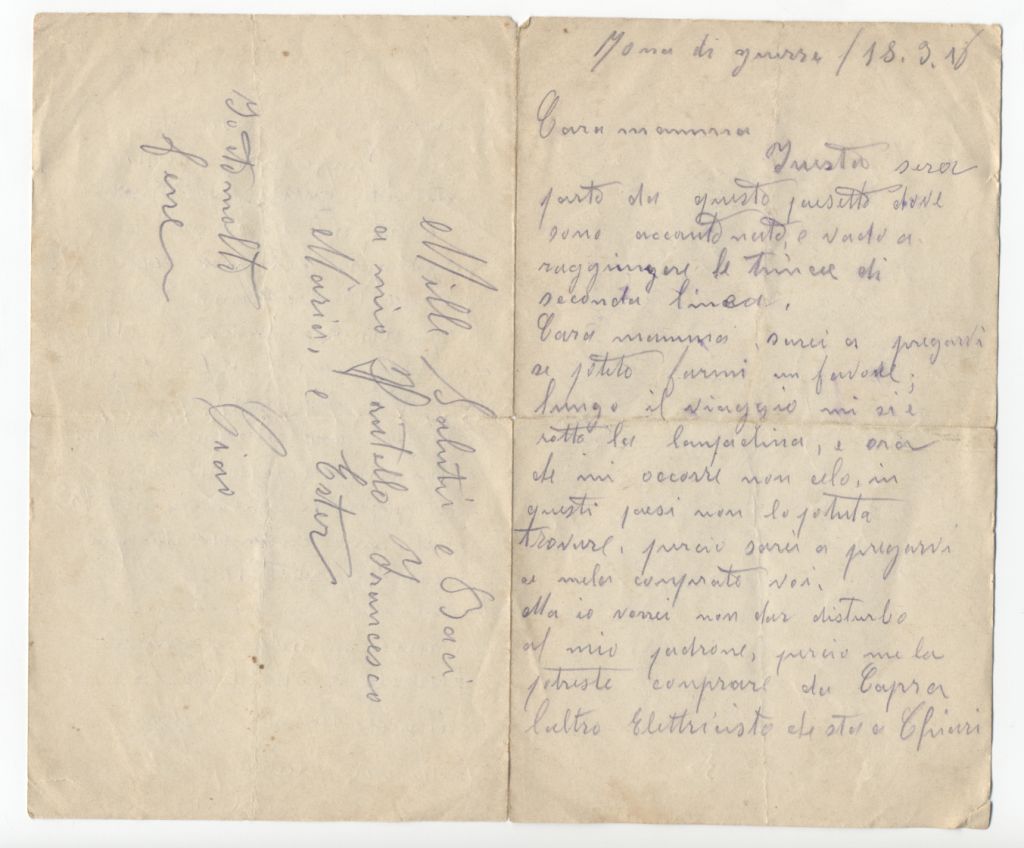 Zona di guerra / 18.9.16
Cara mamma
Questa sera
parto da questo paesetto dove
sono accantonato, e vado a
raggiungere le trincee di
seconda linea.
Cara mamma, sarei a pregarvi
se potete farmi un favore;
lungo il viaggio mi si è
rotto la lampadina, e ora
che mi occorre non celo, in
questi paesi non lo potuta
trovare, perciò sarei a pregarvi
se mela comprate voi.
Ma io vorrei non dar disturbo
al mio padrone, perciò me la
potreste comprare da Capra
l'altro Elettricista che sta a Chiari
Mille Saluti e Baci
a mio fratello Francesco
Maria, e Ester
Io sto molto Ciao
bene